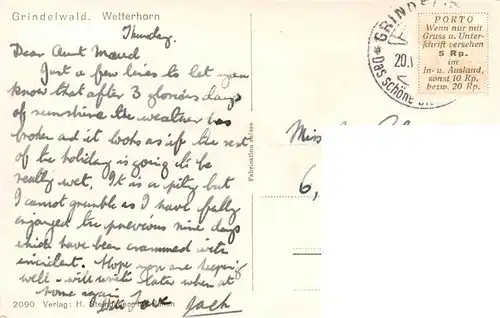 Grindelwald. Wetterhorn
Thursday.
Dear Aunt Maud
Just a few lines to let you
know that after 3 glorious days
of sunshine the weather has
broken and it looks as if the rest
of the holiday is going to be
really wet. It is a pity but
I cannot grumble as I have fully
enjoyed the previous nine days
which have been crammed with
incident. Hope you are keeping
well - will write later when at
home again. love Jack
2090 Verlag: H.
Fabrication Suisse
GRINDEL
20.
Das schöne
PORTO
Wenn nur mit
Gruss u. Unter-
schrift versehen
5 Rp.
im
In- u. Ausland,
sonst 10 Rp.
bezw. 20 Rp.
Miss
6,